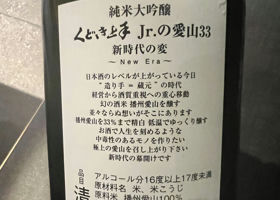 純米大吟醸
くどき上手 Jr.の愛山33
新時代の変
～ New Era ～
日本酒のレベルが上がっている今日
"造り手 = 蔵元" の時代
経営から酒質重視への重心移動
幻の酒米 播州愛山を醸す
並々ならぬ想いがそこに有ります
播州愛山を33%まで精白 低温でゆっくり醸す
お酒で人生を刻めるような
中毒性のあるモノを作りたい
極上の愛山を召し上がり下さい
新時代の幕開けです
品目
清
アルコール分16度以上17度未満
原材料名 米、米こうじ
原料米 播州愛山100%